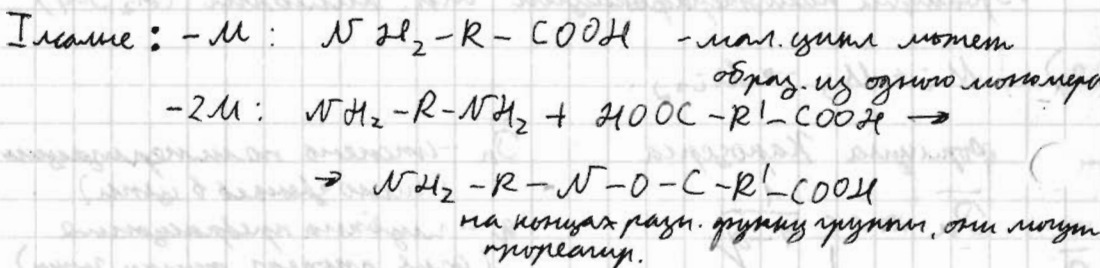 I стадие : - М : NH₂-R-COOH - мал. цикл может
образ. из одного мономера
- 2М : NH₂-R-NH₂ + HOOC-R'-COOH →
→ NH₂-R-N-O-C-R'-COOH
на концах разн. функц группы, они могут
прореагир.